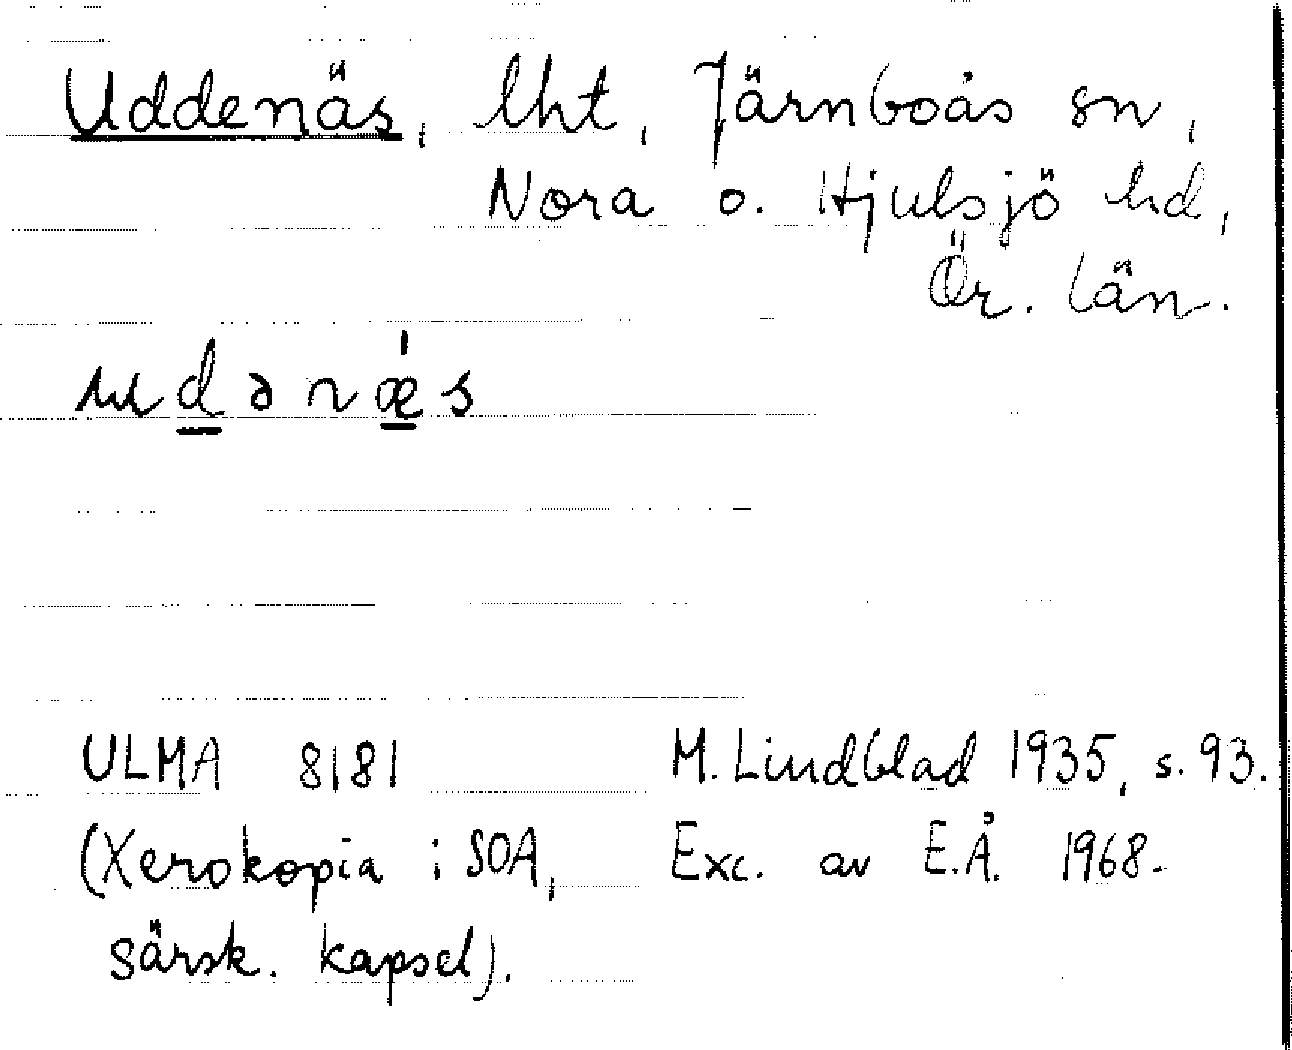 Uddenäs, lht, Järnboås sn,
Nora o. Hjulsjö hd,
Ör. län.
udənǽs
ULMA 8181 M. Lindblad 1935, s. 93.
(Xerokopia i SOA, Exc. av E.Å. 1968.
särsk. kapsel).